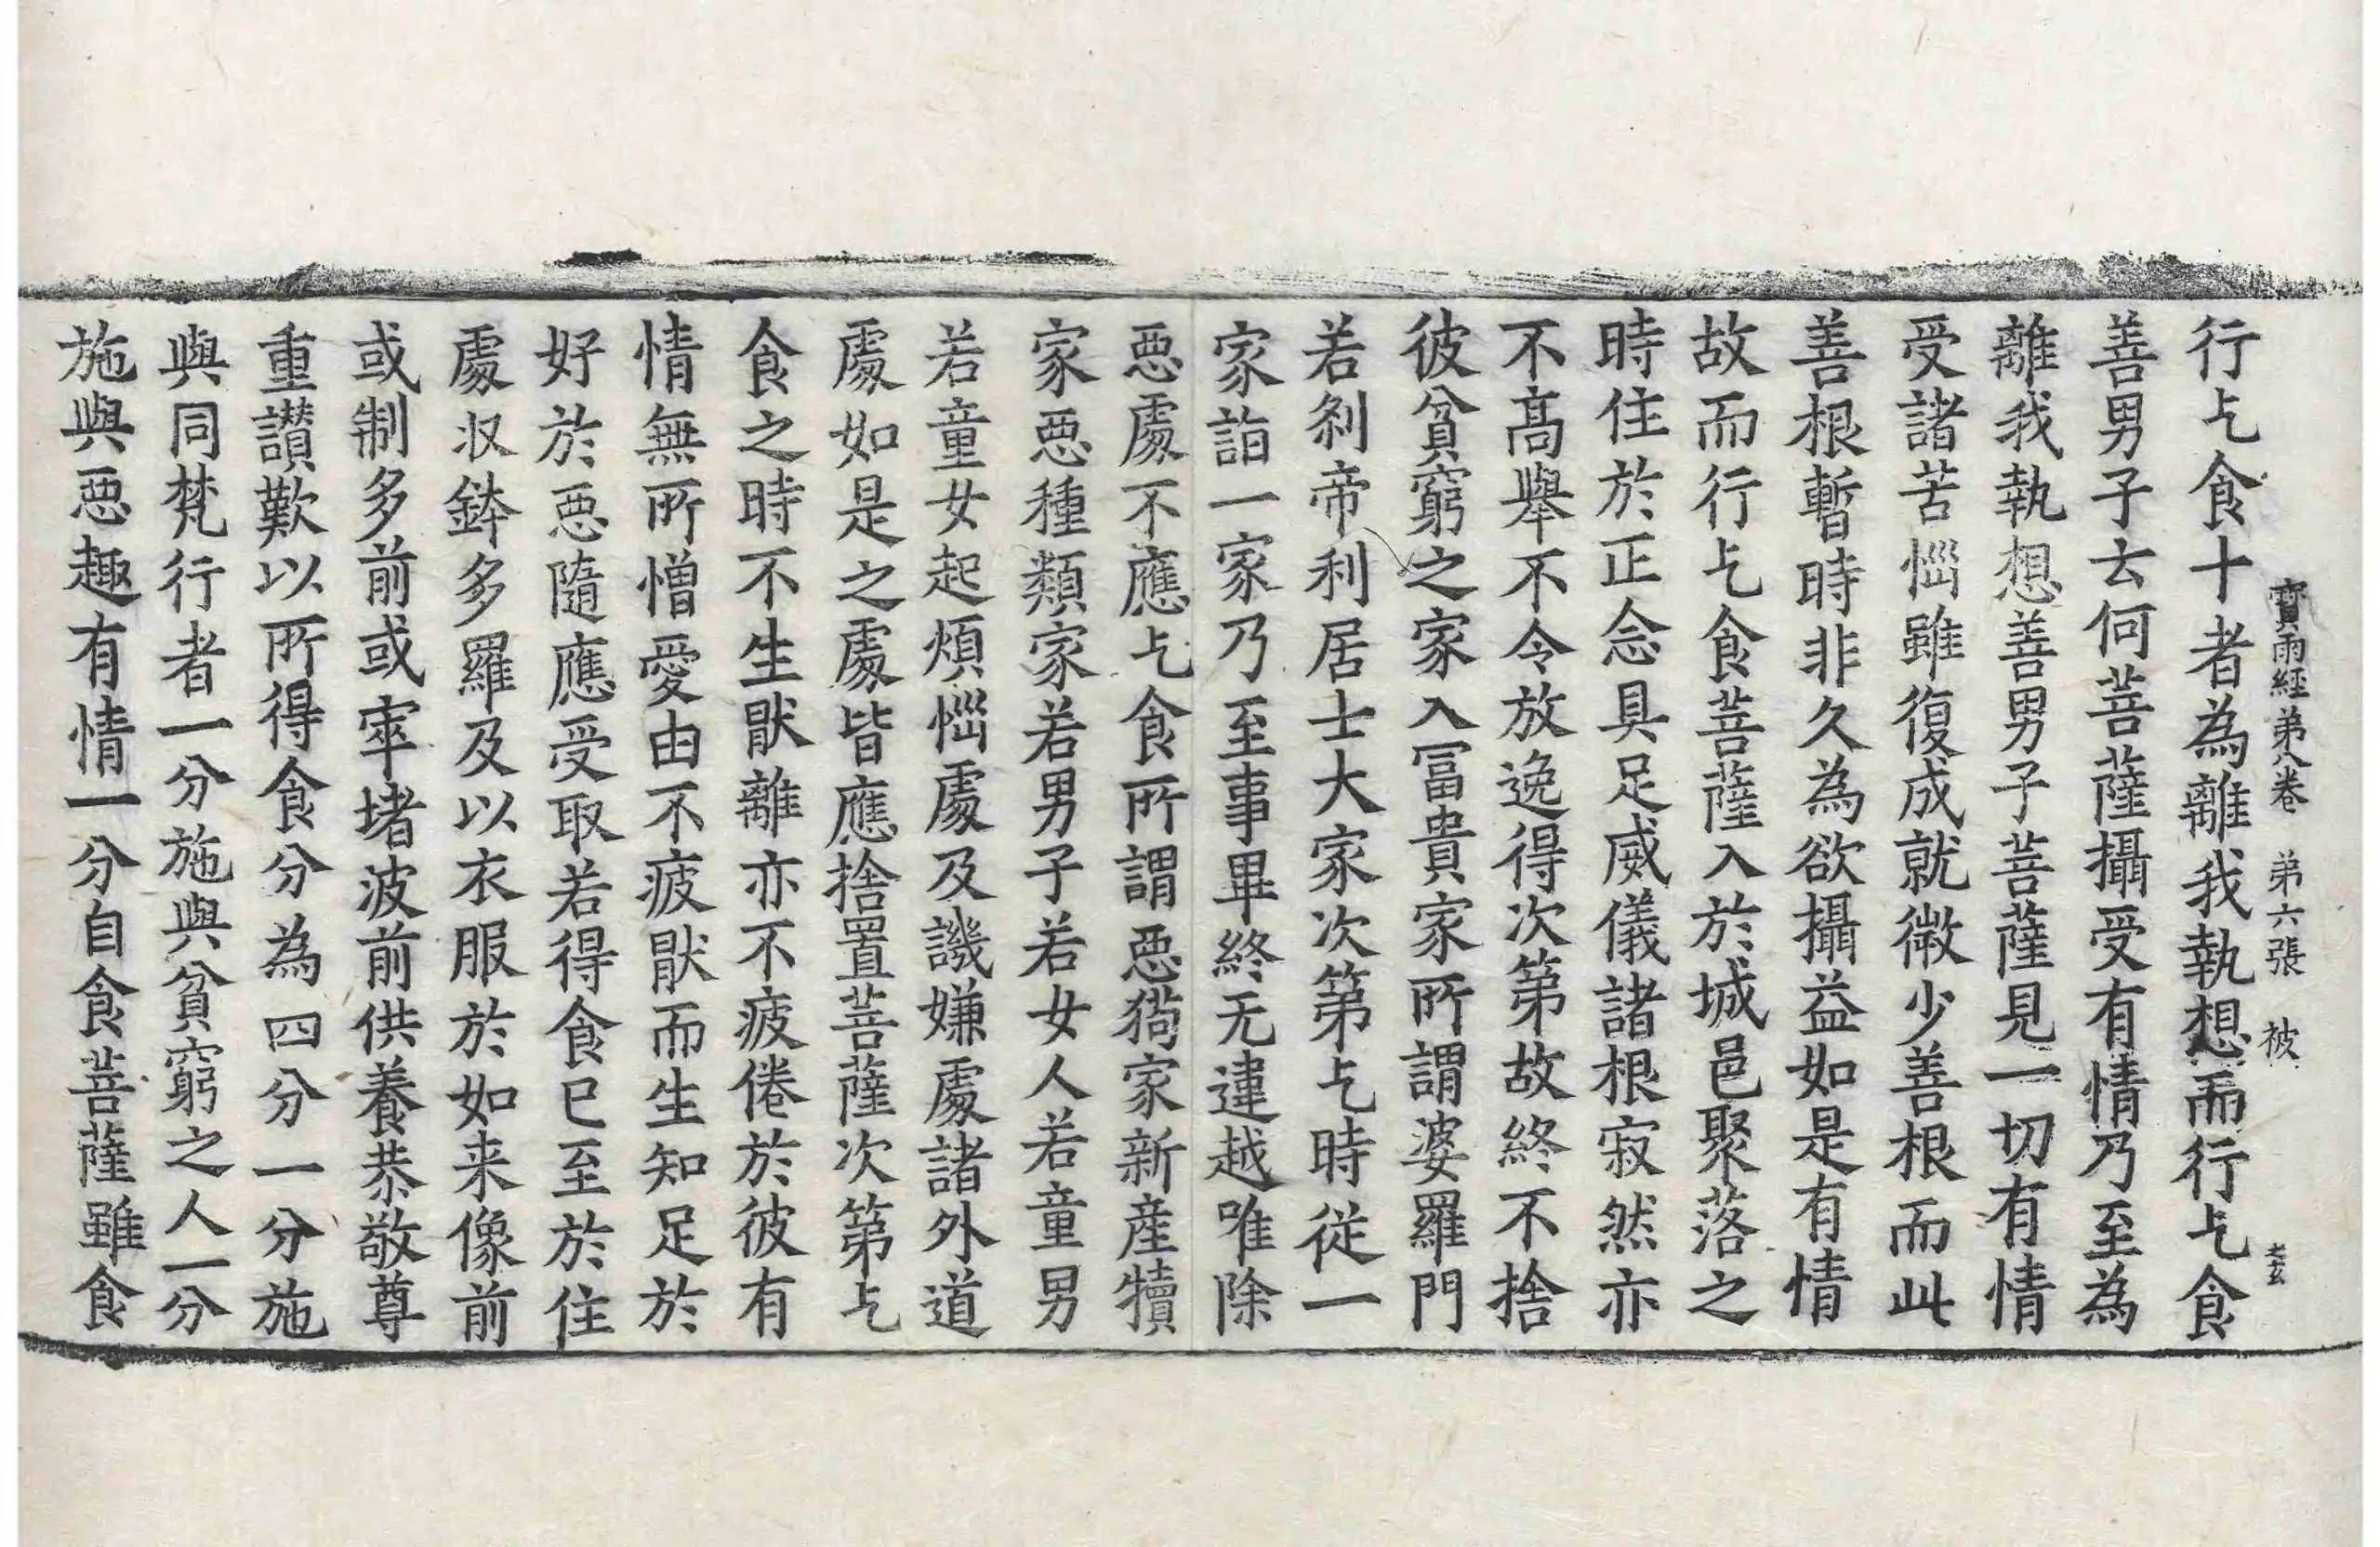 寶雨經弟八卷　弟六張　被
行乞食十者為離我執想而行乞食
善男子云何菩薩攝受有情乃至為
離我執想善男子菩薩見一切有情
受諸苦惱雖復成就微少善根而此
善根暫時非久為欲攝益如是有情
故而行乞食菩薩入於城邑聚落之
時住於正念具足威儀諸根寂然亦
不髙舉不令放逸得次第故終不捨
彼貧窮之家入冨貴家所謂婆羅門
若剎帝利居士大家次第乞時從一
家詣一家乃至事畢終无違越唯除
惡處不應乞食所謂惡狗家新産犢
家惡種類家若男子若女人若童男
若童女起煩惱處及譏嫌處諸外道
處如是之處皆應捨置菩薩次第乞
食之時不生猒離亦不疲倦於彼有
情無所憎愛由不疲猒而生知足於
好於惡隨應受取若得食已至於住
處収鉢多羅及以衣服於如来像前
或制多前或窣堵波前供養恭敬尊
重讃歎以所得食分為四分一分施
與同梵行者一分施與貧窮之人一分
施與惡趣有情一分自食菩薩雖食